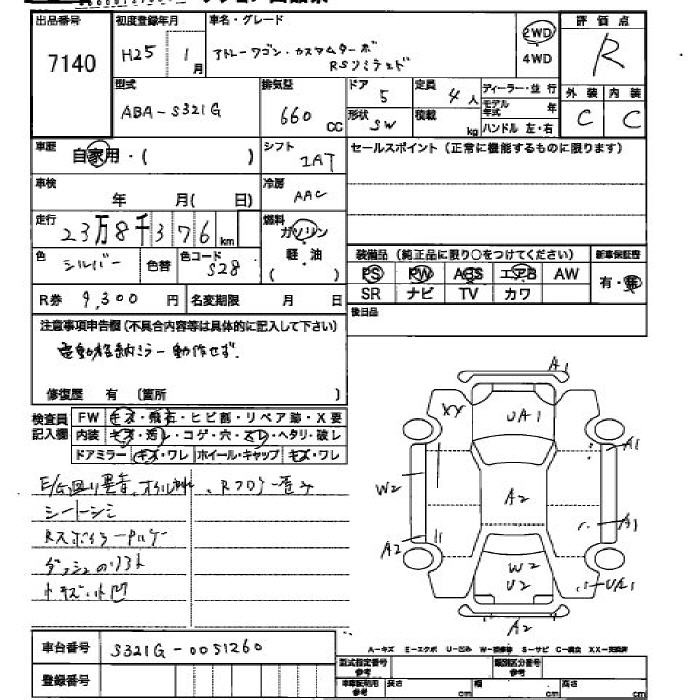 出品番号
7140
初度登録年月
H25 1月
車名・グレード
アトレーワゴン・カスタムターボ
RSリミテッド
2WD
4WD
評価点
R
型式
ABA-S321G
排気量
660 CC
ドア
5
形状
SW
定員
4人
積載
kg
ディーラー・並行
モデル年式 年
ハンドル 左・右
外装 内装
C C
車歴
自家用・( )
シフト
IAT
セールスポイント(正常に機能するものに限ります)
車検
年 月( 日)
冷房
AAC
走行
23万8千376km
燃料
ガソリン
軽・油
( )
色
シルバー
色替
色コード
S28
装備品(純正品に限り○をつけてください)
新車保証書
PS PW ABS エアB AW
SR ナビ TV カワ
有・無
R券 9,300円
名変期限 月 日
後日品
注意事項申告欄(不具合内容等は具体的に記入して下さい)
電動格納ミラー動作せず.
修復歴 有 〔箇所 〕
検査員
記入欄
FW キズ・飛石・ヒビ割・リペア跡・X要
内装 キズ・汚レ・コゲ・穴・スレ・ヘタリ・破レ
ドアミラー キズ・ワレ ホイール・キャップ キズ・ワレ
シートシミ
小キズ・小凹
A1
XX
UA1
A1
W2
A2
A1
A2
W2
U2
UA1
A2
車台番号
S321G-0051260
登録番号
A-キズ E-エクボ U-凹み W-補修跡 S-サビ C-腐食 XX-交換済
型式指定番号
参考
類別区分番号
参考
長さ cm
幅 cm
高さ cm